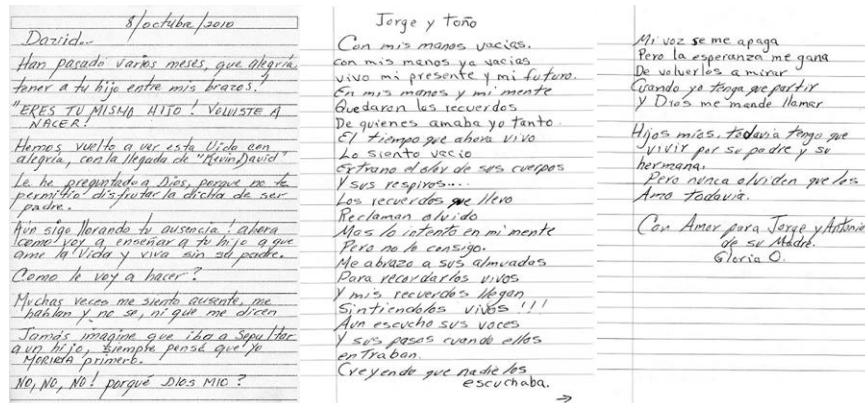 8/octubre/2010
David...
Han pasado varios meses, que alegría
tener a tu hijo entre mis brazos!
"ERES TU MISMO HIJO! VOLVISTE A
NACER!
Hemos vuelto a ver esta Vida con
alegría, con la llegada de "Kevin David"
Le he preguntado a Dios, porque no te
permitio disfrutar la dicha de ser
padre.
Aun sigo llorando tu ausencia! ahora
como voy a enseñar a tu hijo a que
ame la Vida y viva sin su padre.
Como le voy a hacer?
Muchas veces me siento ausente, me
hablan y no se, ni que me dicen
Jamás imagine que iba a Sepultar
a un hijo, siempre pensé que yo
MORIRIA primero.
NO, NO, NO! porqué DIOS MIO?
Jorge y Toño
Con mis manos vacias.
con mis manos ya vacias
vivo mi presente y mi futuro.
En mis manos y mi mente
Quedaron los recuerdos
De quienes amaba yo tanto.
El tiempo que ahora vivo
Lo siento vacio
Extraño el olor de sus cuerpos
Y sus respiros....
Los recuerdos que llevo
Reclaman olvido
Mas lo intento en mi mente
Pero no lo consigo.
Me abrazo a sus almuadas
Para recordarlos vivos
Y mis recuerdos llegan
Sintiendolos vivos !!!
Aun escucho sus voces
Y sus pasos cuando ellos
entraban.
Creyendo que nadie los
escuchaba.
→
Mi voz se me apaga
Pero la esperanza me gana
De volverlos a mirar
Cuando yo tenga que partir
Y Dios me mande llamar
Hijos mios, todavia tengo que
vivir por su padre y su
hermana.
Pero nunca olviden que los
Amo todavia.
Con Amor para Jorge y Antonio
de su Madre.
Gloria O.